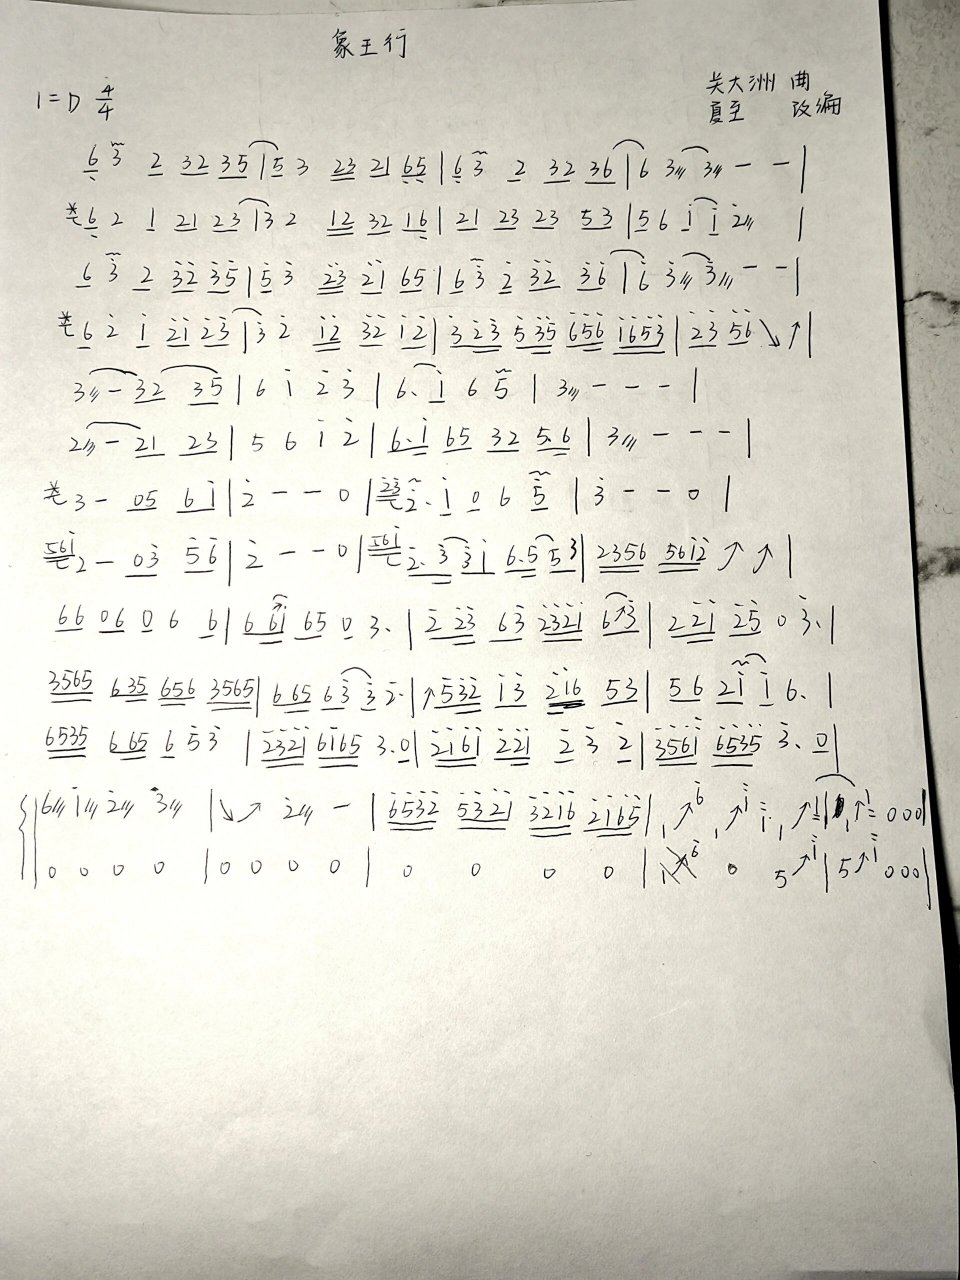 象王行
1=D 4/4
关大洲 曲
夏至 改编
6 3 2 32 35 | 5 3 23 21 65 | 6 3 2 32 36 | 6 3 3 - - |
6 2 1 21 23 | 3 2 12 32 16 | 21 23 23 53 | 5 6 i i 2 |
6 3 2 32 35 | 5 3 23 21 65 | 6 3 2 32 36 | 6 3 3 - - |
6 2 i 2i 23 | 3 2 i2 32 i2 | 323 535 656 1653 | 23 56 ↘ ↗ |
3 - 32 35 | 6 i 2 3 | 6. i 6 5 | 3 - - - |
2 - 21 23 | 5 6 i 2 | 6.i 65 32 5.6 | 3 - - - |
3 - 05 6i | 2 - - 0 | 23 2. i 0 6 5 | 3 - - 0 |
56i 2 - 03 56 | 2 - - 0 | 56i 2. 3 3i 6.5 53 | 2356 56i2 ↗ ↗ |
66 06 0 6 6 | 6 6i 65 0 3. | 2 23 63 232i 6↗3 | 2 2i 25 0 3. |
3565 635 656 3565 | 665 63 3 2. | ↑532 i3 216 53 | 5 6 2i i 6. |
6535 665 6 5 3 | 232i 6165 3.0 | 2i6i 22i 2 3 2 | 356i 6535 3. 0 |
6 i 2 3 | ↘ ↗ 2 - | 6532 532i 32i6 2i65 | , ↗6 , ↗i i , ↗i | , ↗i 000 |
0 0 0 0 | 0 0 0 0 | 0 0 0 0 | 0 5↗i | 5↗i 000 |